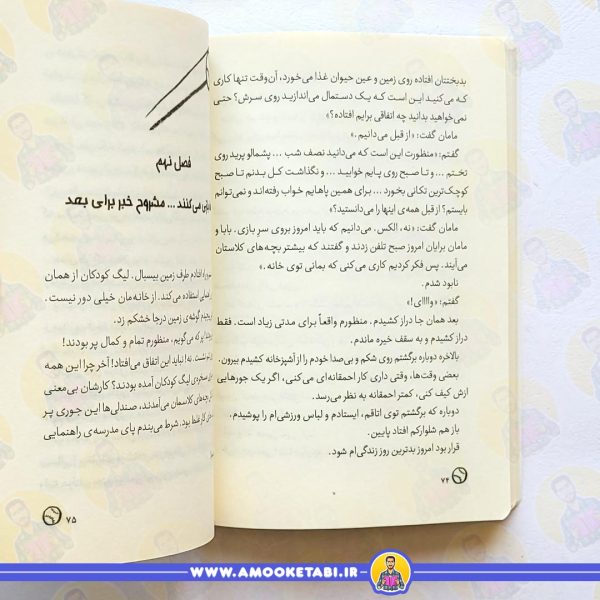 بدبختتان افتاده روی زمین و عین حیوان غذا می‌خورد، آن‌وقت تنها کاری
که می‌کنید این است که یک دستمال می‌اندازید روی سرش؟ حتی
نمی‌خواهید بدانید چه اتفاقی برایم افتاده؟»
مامان گفت: «از قبل می‌دانیم.»
گفتم: «منظورت این است که می‌دانید نصف شب ... پشمالو پرید روی
تختم ... و تا صبح روی پایم خوابید ... و نگذاشت کل بدنم تا صبح
کوچک‌ترین تکانی بخورد ... برای همین پاهایم خواب رفته‌اند و نمی‌توانم
بایستم؟ از قبل همه‌ی اینها را می‌دانستید؟»
مامان گفت: «نه، الکس. می‌دانیم که باید امروز بروی سرِ بازی. بابا و
مامان برایان امروز صبح تلفن زدند و گفتند که بیشتر بچه‌های کلاستان
می‌آیند. پس فکر کردیم کاری می‌کنی که بمانی توی خانه.»
نابود شدم.
گفتم: «واااای!»
بعد همان جا دراز کشیدم. منظورم واقعاً برای مدتی زیاد است. فقط
دراز کشیدم و به سقف خیره ماندم.
بالاخره دوباره برگشتم روی شکم و بی‌صدا خودم را از آشپزخانه کشیدم بیرون.
بعضی وقت‌ها، وقتی داری کار احمقانه‌ای می‌کنی، اگر یک جورهایی
ازش کیف کنی، کمتر احمقانه به نظر می‌رسد.
دوباره که برگشتم توی اتاقم، ایستادم و لباس ورزشی‌ام را پوشیدم،
باز هم شلوارکم افتاد پایین.
قرار بود امروز بدترین روز زندگی‌ام شود.
۷۴
فصل نهم
می‌کنند ... مشروح خبر برای بعد
راه افتادم طرف زمین بیسبال. لیگ کودکان از همان
استفاده می‌کند. از خانه‌مان خیلی دور نیست.
گوشه‌ی زمین درجا خشکم زد.
که می‌گویم، منظورم تمام و کمال پر بودند!
نه! نباید این اتفاق می‌افتاد! آخر چرا این همه
لیگ کودکان آمده بودند؟ کارشان بی‌معنی
بچه‌های کلاسمان می‌آمدند، صندلی‌ها این جوری پر
کار غلط بود. شرط می‌بندم پای مدرسه‌ی راهنمایی
۷۵
WWW.AMOOKETABI.IR